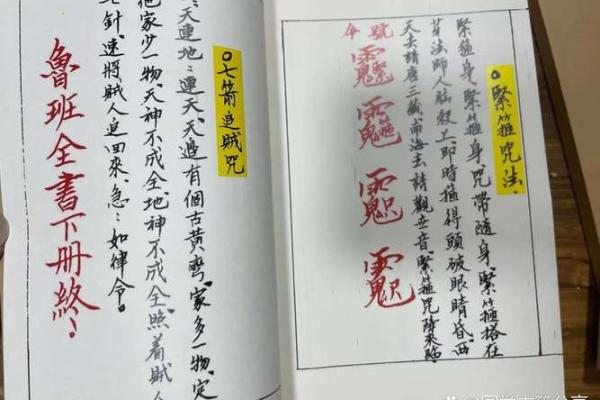 ○緊箍咒法
緊箍身、緊箍身、咒帶隨身、緊箍搭在
芽法師人腦殼上、即時箍得頭破眼睛昏、西
天去請唐三藏、南海去請觀世音、緊箍咒降來臨
號令
○七箭追賊咒
天連地：連天、天邊有個古黃灣、家多一物、定
他家少一物、天神不成全、地神不成全、照着賊人
七針、速將賊人追回來、急：如律令。
魯班全書下册終！